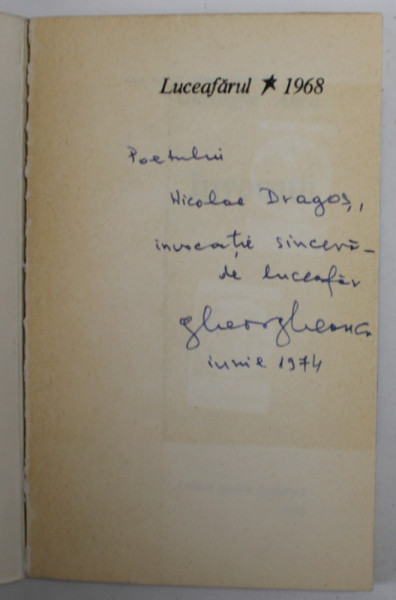 Luceafărul ★ 1968
Poetului
Nicolae Dragoș,
invocație sinceră –
de luceafăr
iunie 1974